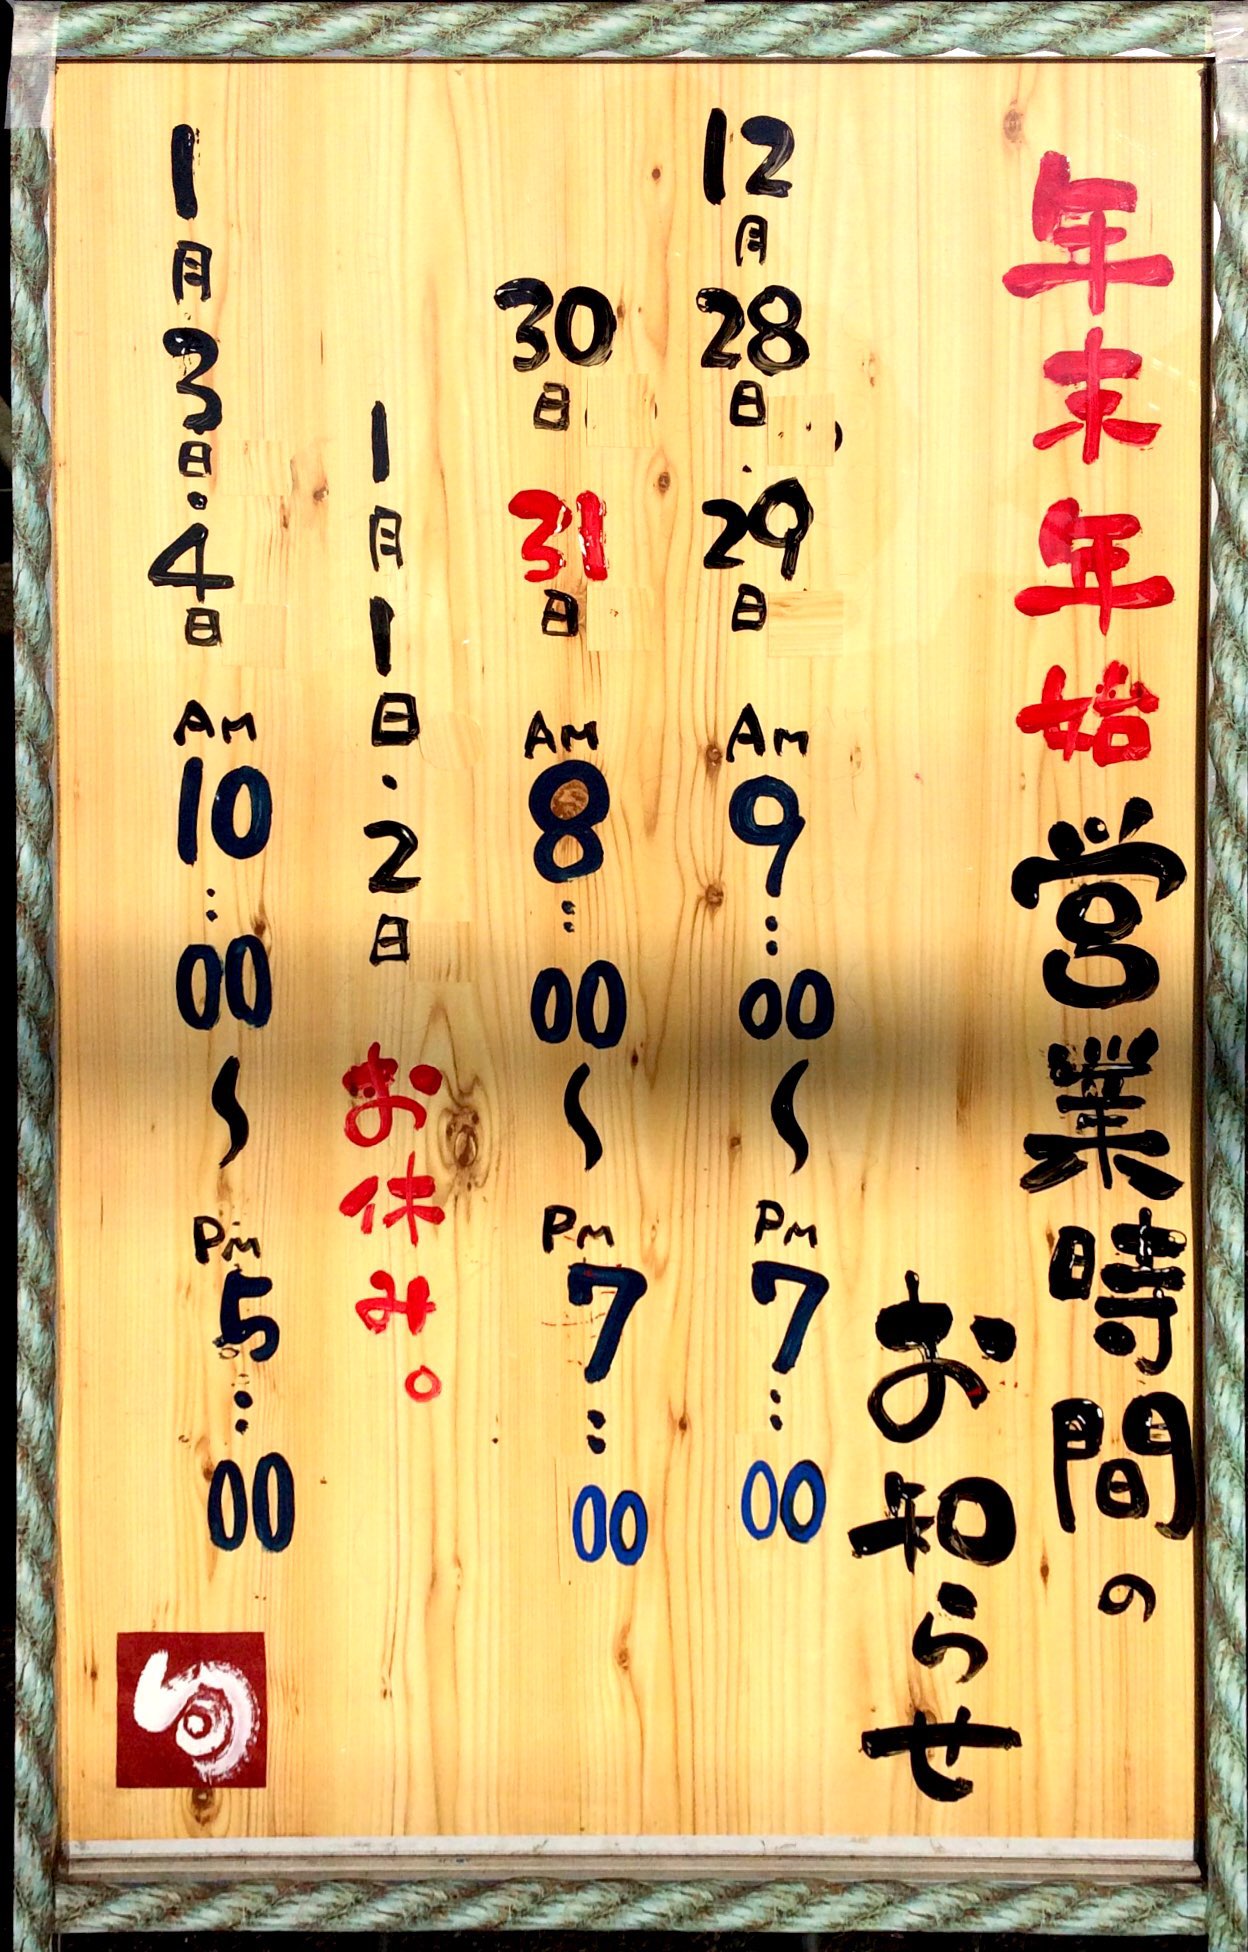 年末年始営業時間の
お知らせ
12月28日・29日 AM9:00〜PM7:00
30日 31日 AM8:00〜PM7:00
1月1日・2日 お休み。
1月3日・4日 AM10:00〜PM5:00